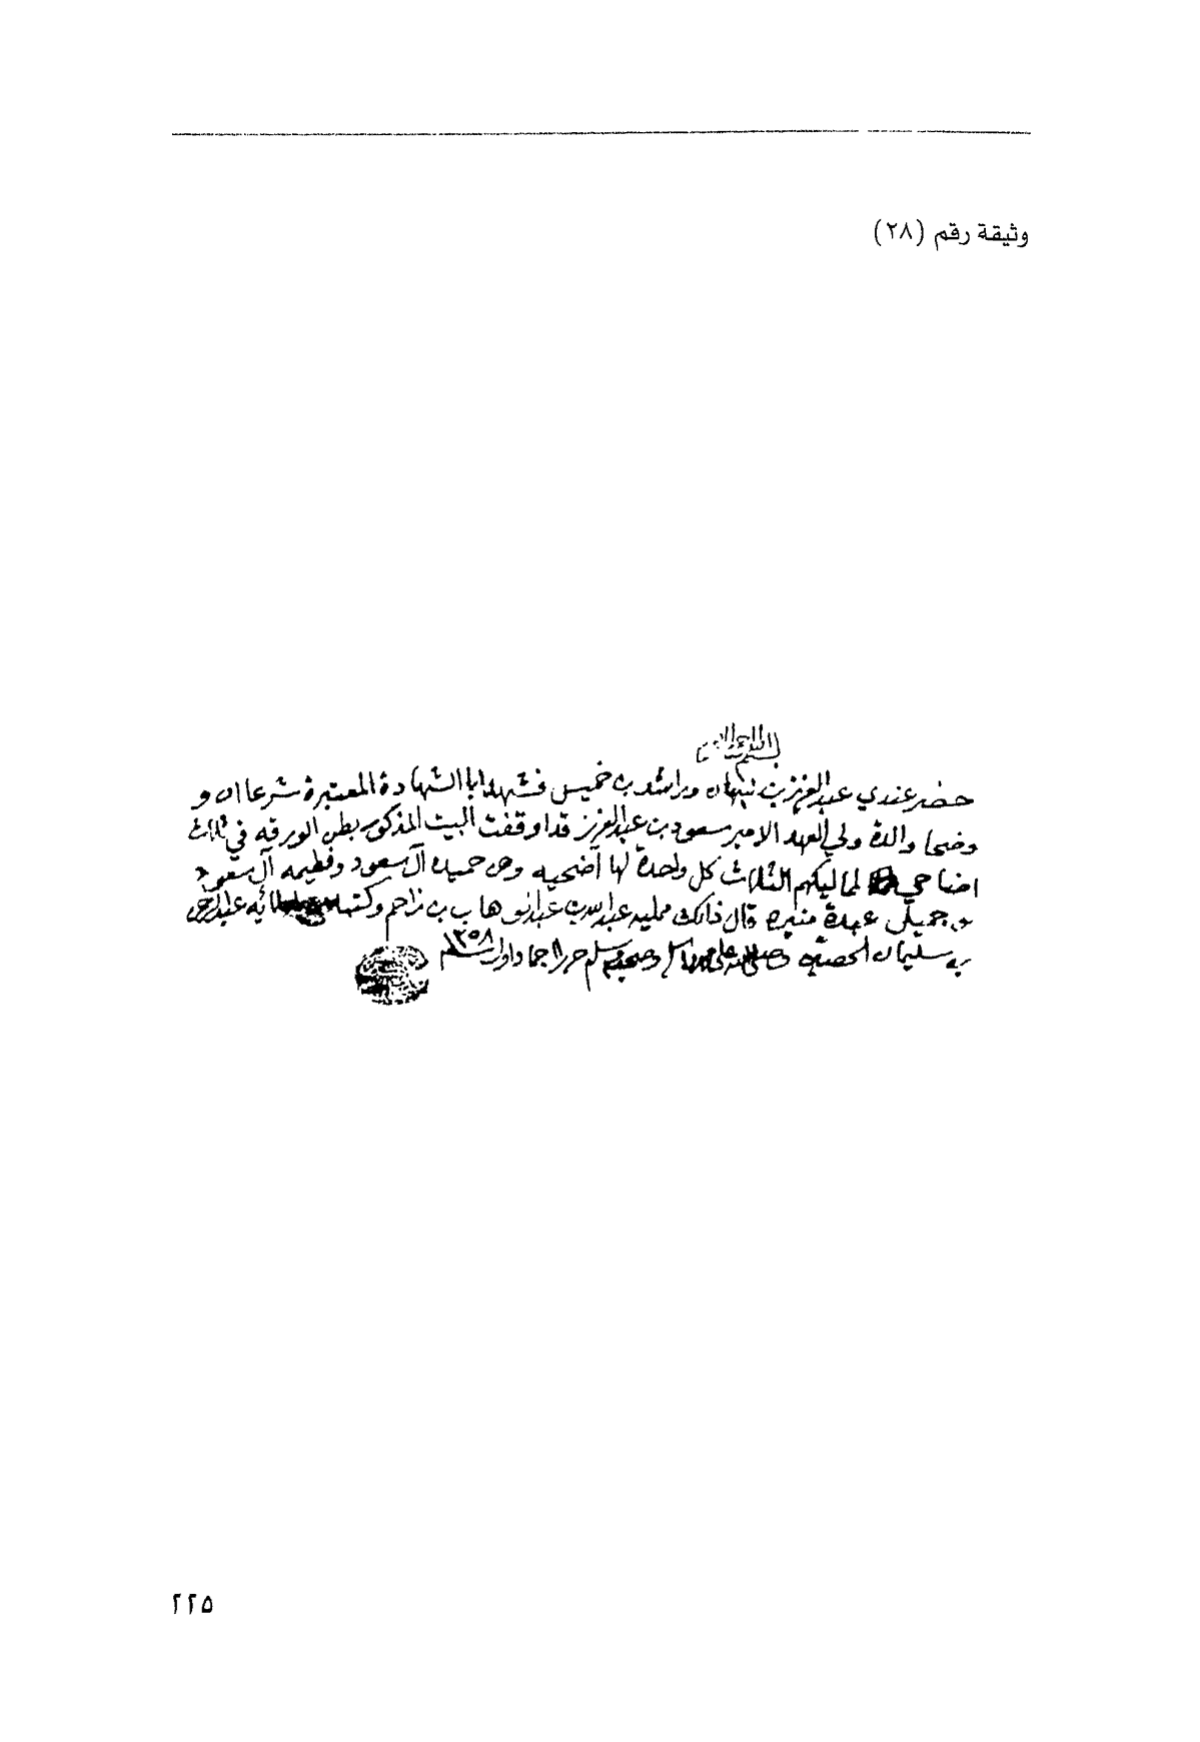 وثيقة رقم (٢٨)
بسم الله الرحمن الرحيم
حضر عندي عبدالعزيز بن نبهان وراشد بن خميس فشهدا باالشهادة المعتبرة شرعا ان و
وضحا والدة ولي العهد الامير سعود بن عبدالعزيز قد اوقفت البيت المذكور بطن الورقه في ثلاث
اضاحي لمماليكهم الثلاث كل واحدة لها أضحيه وهن حميده آل سعود وفطيمه آل سعود
جميلى عبدة منيره قال ذالك ممليه عبدالله بن عبدالوهاب بن زاحم وكتبه عبدالرحمن
بن سليمان الحصين وصلى الله على محمد وصحبه وسلم حرر جماد اول سنة ١٣٥٨
٢٢٥